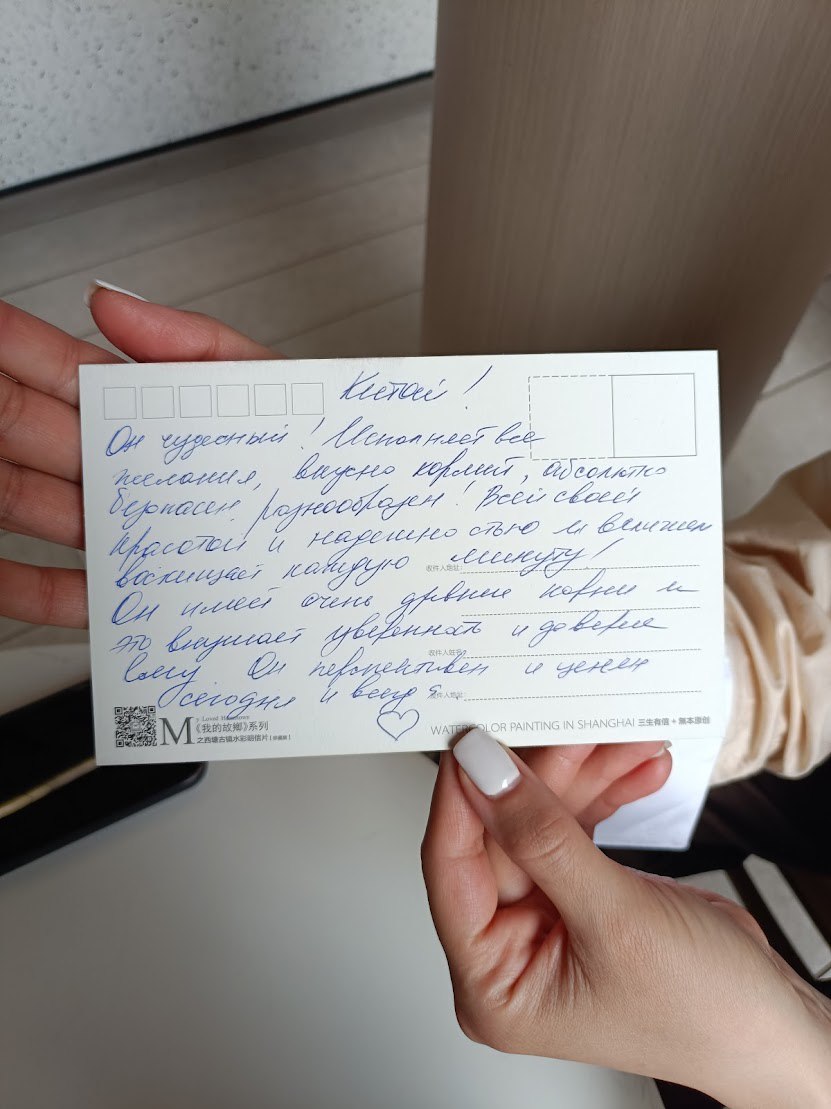 Китай!
Он чудесный! Исполняет все
желания, вкусно кормит, абсолютно
безопасен, разнообразен! Всей своей
красотой и надежностью и величием
восхищает каждую минуту!
收件人地址:
Он имеет очень древние корни и
это внушает уверенность и доверие
收件人姓名:
Ему. Он перспективен и ценен
сегодня и всегда.
收件人地址:
My Loved Hometown
《我的故鄉》系列
之西塘古镇水彩明信片
WATERCOLOR PAINTING IN SHANGHAI 三生有信 + 無本原创